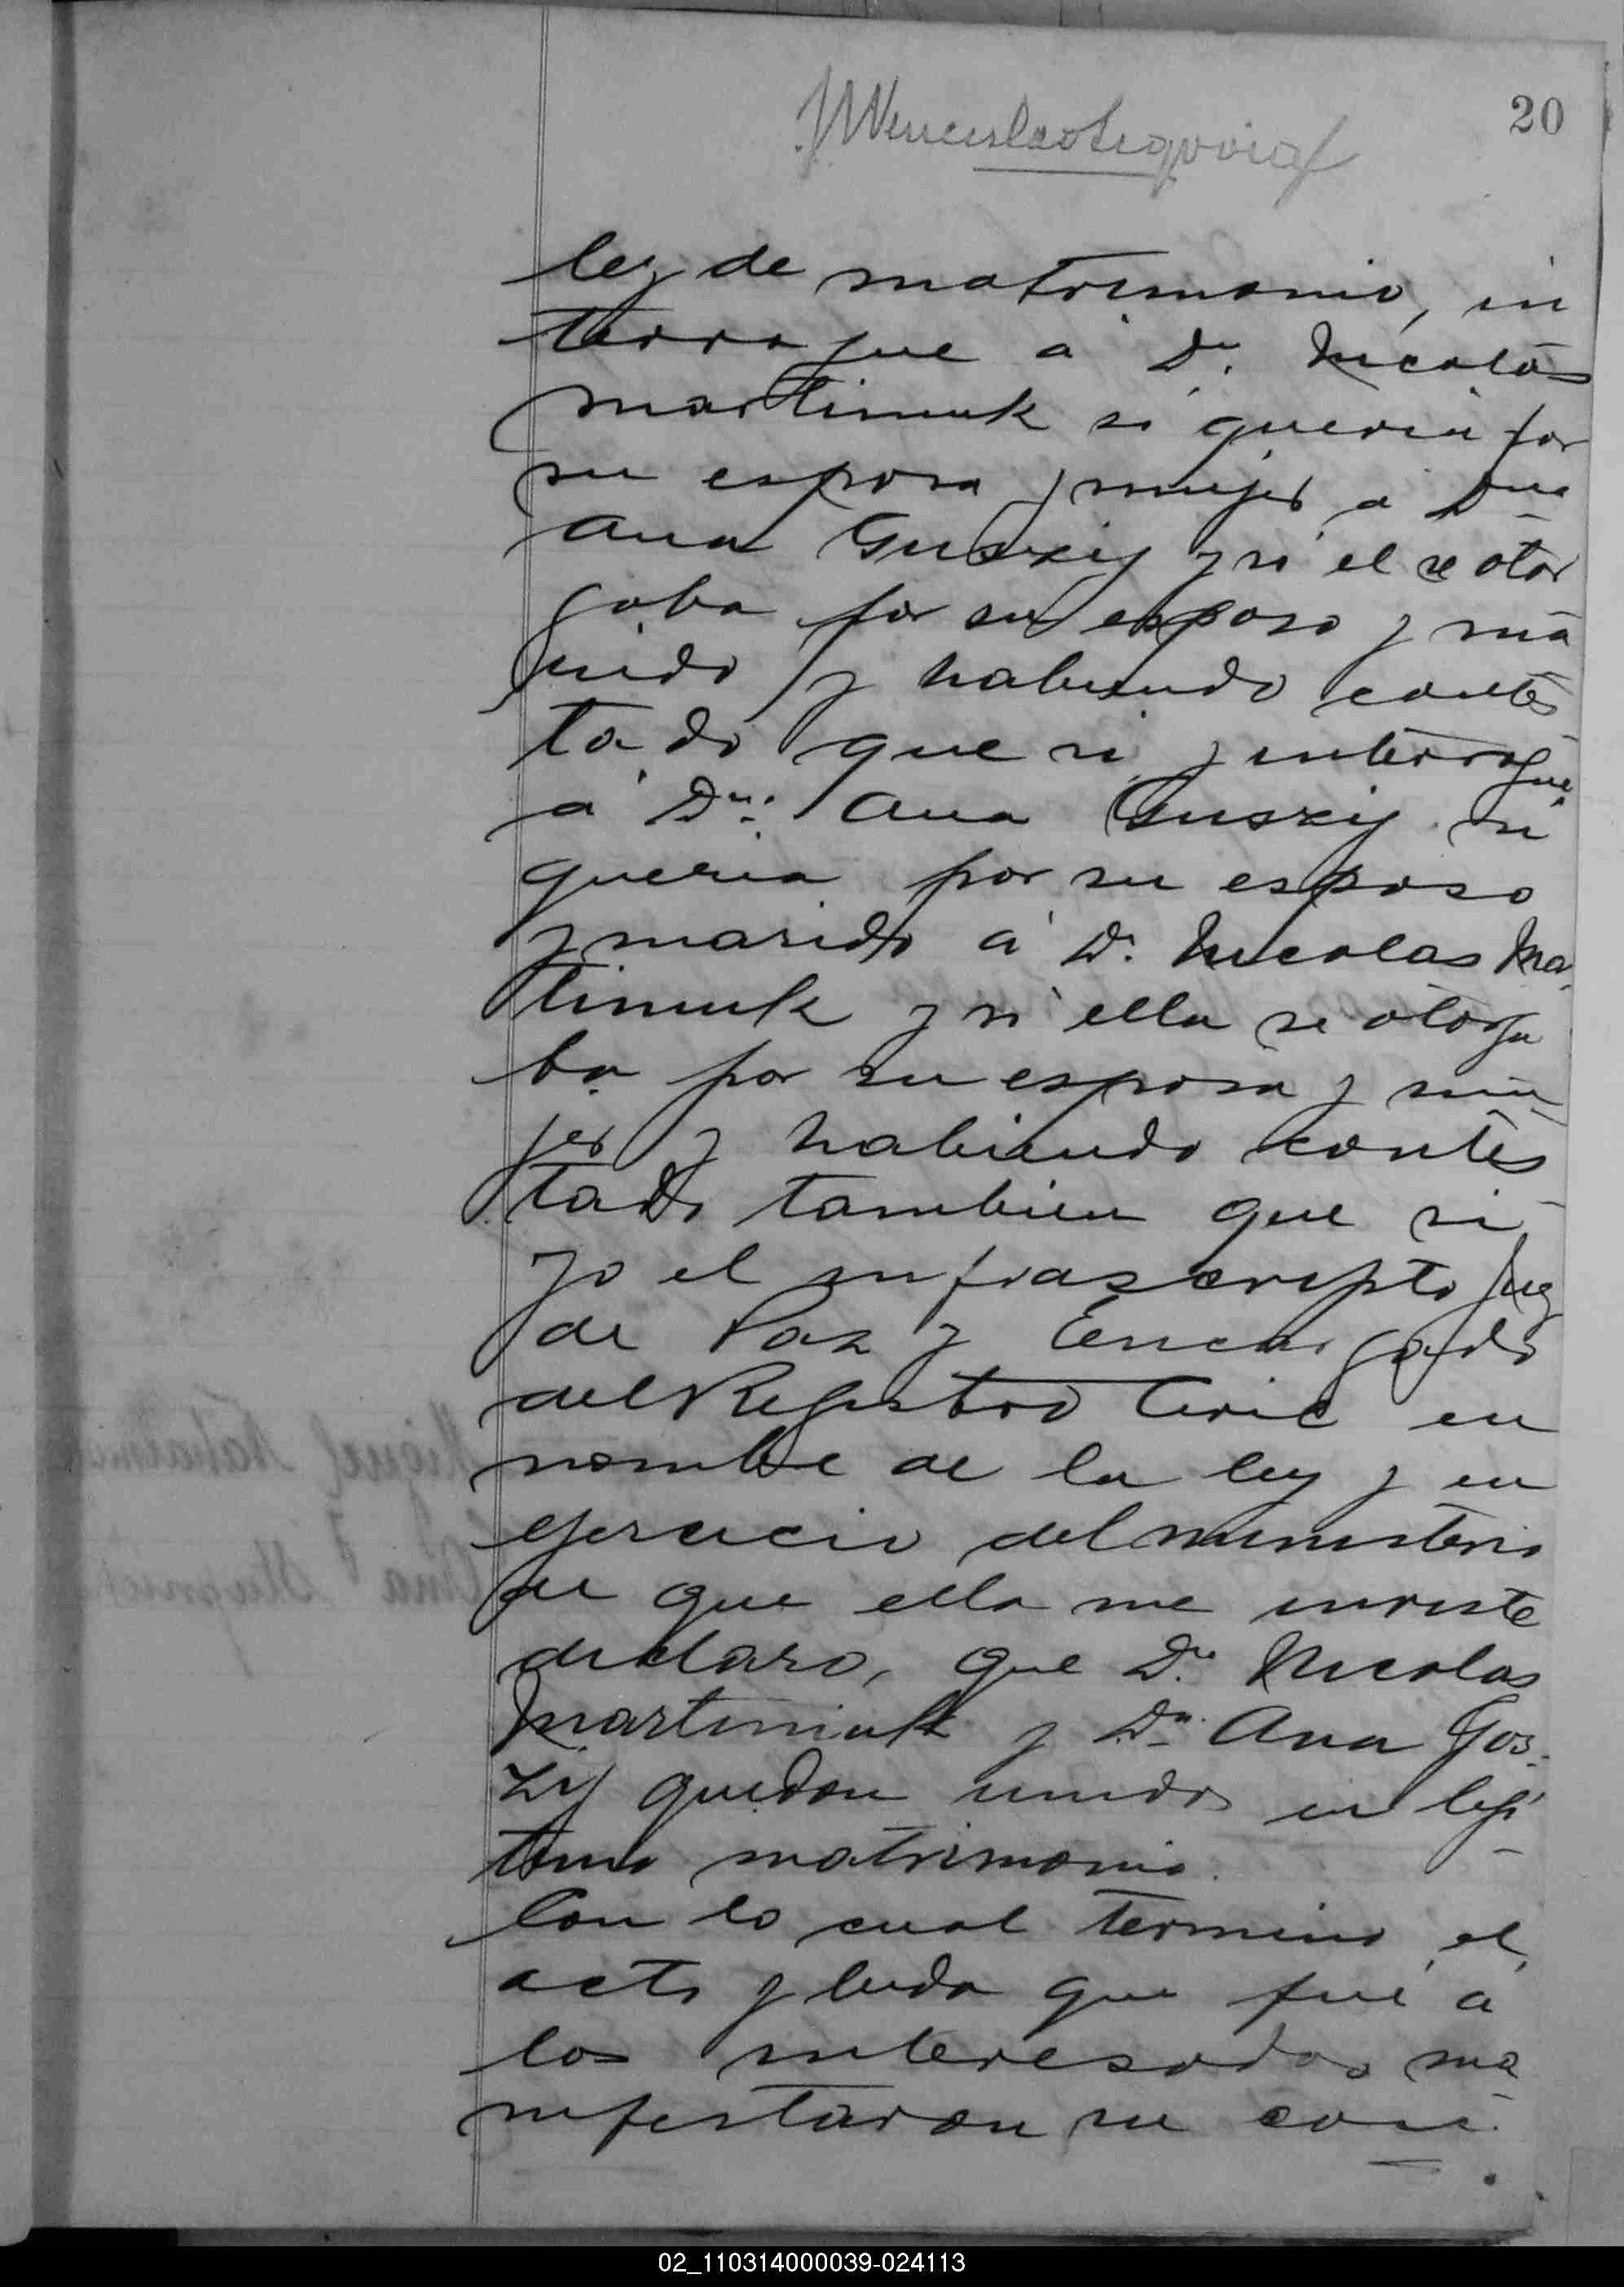 20
ley de matrimonio, in
terrogue a Dn. Nicolás
Martiniuk si queria por
su esposa y mujer a Dna
Ana Guszij y si el se otor
gaba por su esposo y ma
rido y habiendo contes
tado que si y interrogue
a Dna. Ana Guszij si
queria por su esposo
y marido á Dn. Nicolas Mar
tiniuk y si ella se otorga
ba por su esposa y mu
jer y habiendo contes
tado tambien que si
yo el infrascripto Juez
de Paz y Encargado
del Registro Civil en
nombre de la ley y en
ejercicio del ministerio
de que ella me inviste
declaro, que Dn. Nicolas
Martiniuk y Dna. Ana Gos-
zij quedan unidos en legi
timo matrimonio.
Con lo cual termino el
acto y leida que fué á
los interesados ma
nifestaron su con
02_110314000039-024113